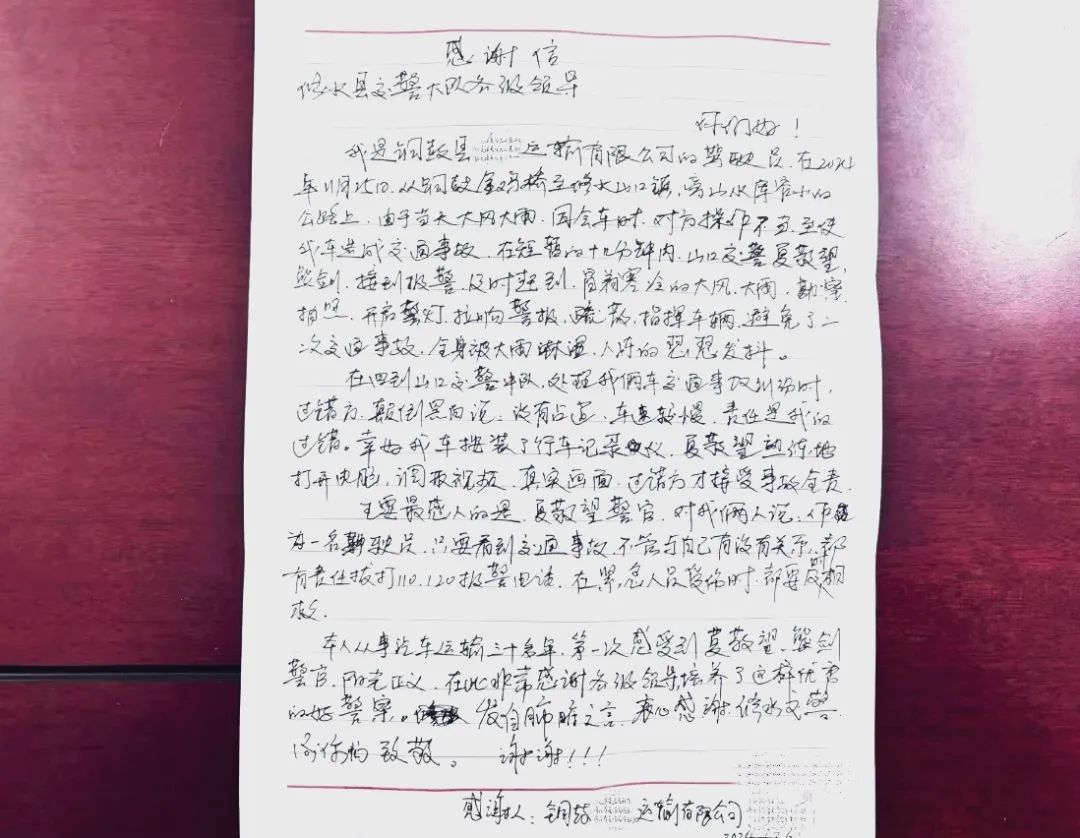 感谢信
修水县交警大队各级领导
你们好！
我是铜鼓县 运输有限公司的驾驶员.在2024
年11月25日.从铜鼓金鸡桥至修水山口镇,
公路上.由于当天大风大雨.因会车时.对方操作不当.至使
我车造成交通事故.在短暂的十几分钟内.山口交警夏敬望,
熊剑.接到报警.及时赶到.冒着寒冷的大风.大雨.勘察.
拍照.开启警灯.拉响警报.疏散.指挥车辆.避免了二
次交通事故.全身被大雨淋湿.人冻的瑟瑟发抖。
在回到山口交警中队.处理我俩车交通事故纠纷时,
过错方.颠倒黑白说:没有占道.车速较慢.责任是我的
过错。幸好我车按装了行车记录仪.夏敬望熟练地
打开电脑,调取视频.真实画面.过错方才接受事故全责.
主要最感人的是.夏敬望警官.对我俩人说:作
为一名驾驶员.只要看到交通事故.不管与自己有没有关系.都
有责任拔打110.120报警电话.在紧急人员受伤时.都要相
救.
本人从事汽车运输三十多年.第一次感受到夏敬望.熊剑
警官.阳光正义.在此非常感谢各级领导培养了这样优秀
的好警察。发自肺腑之言.衷心感谢修水交警.
向你们致敬。谢谢!!!
感谢人:铜鼓 运输有限公司